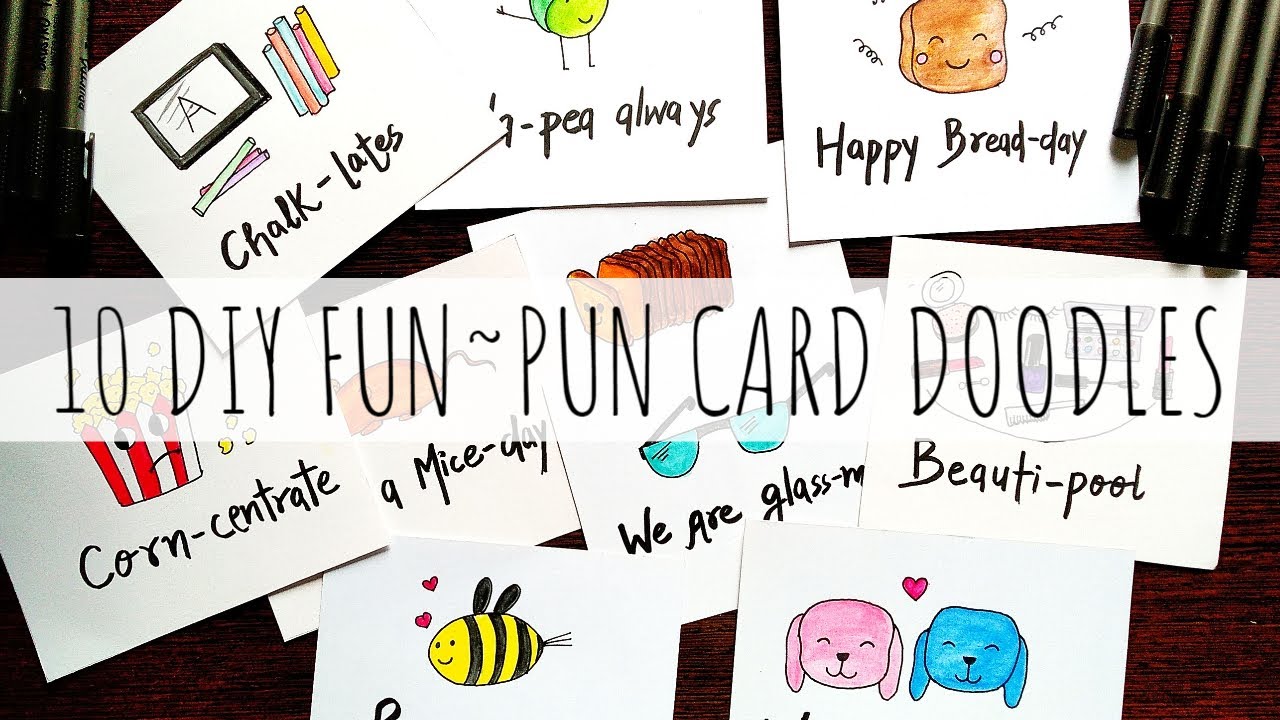 Chalk-lates
-pea always
Happy Bread-day
10 DIY FUN~PUN CARD DOODLES
Corn-centrate
a Mice-day
We Are glass-m
Beauti-pool
A